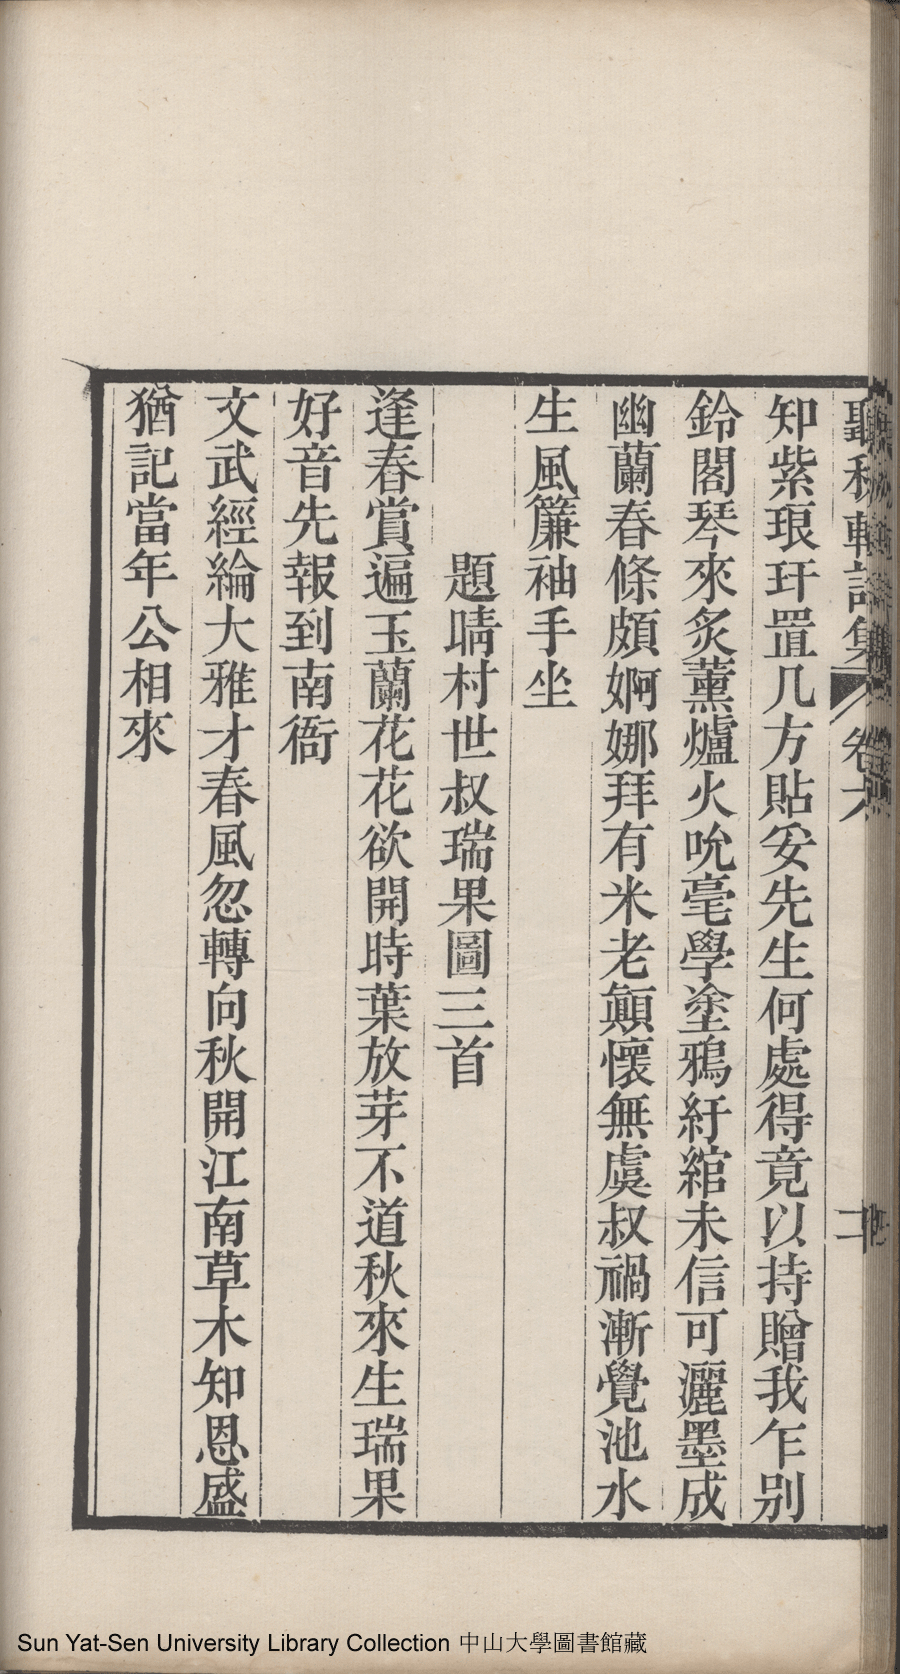 聽秋軒詩集 卷六 二
知紫琅玕罝几方貼妥先生何處得竟以持贈我乍別
鈴閣琴來炙薰爐火吮毫學塗鴉紆綰未信可灑墨成
幽蘭春條頗婀娜拜有米老顛懷無虞叔禍漸覺池水
生風簾袖手坐
題晴村世叔瑞果圖三首
逢春賞遍玉蘭花花欲開時葉放芽不道秋來生瑞果
好音先報到南衙
文武經綸大雅才春風忽轉向秋開江南草木知恩盛
猶記當年公相來
Sun Yat-Sen University Library Collection 中山大學圖書館藏